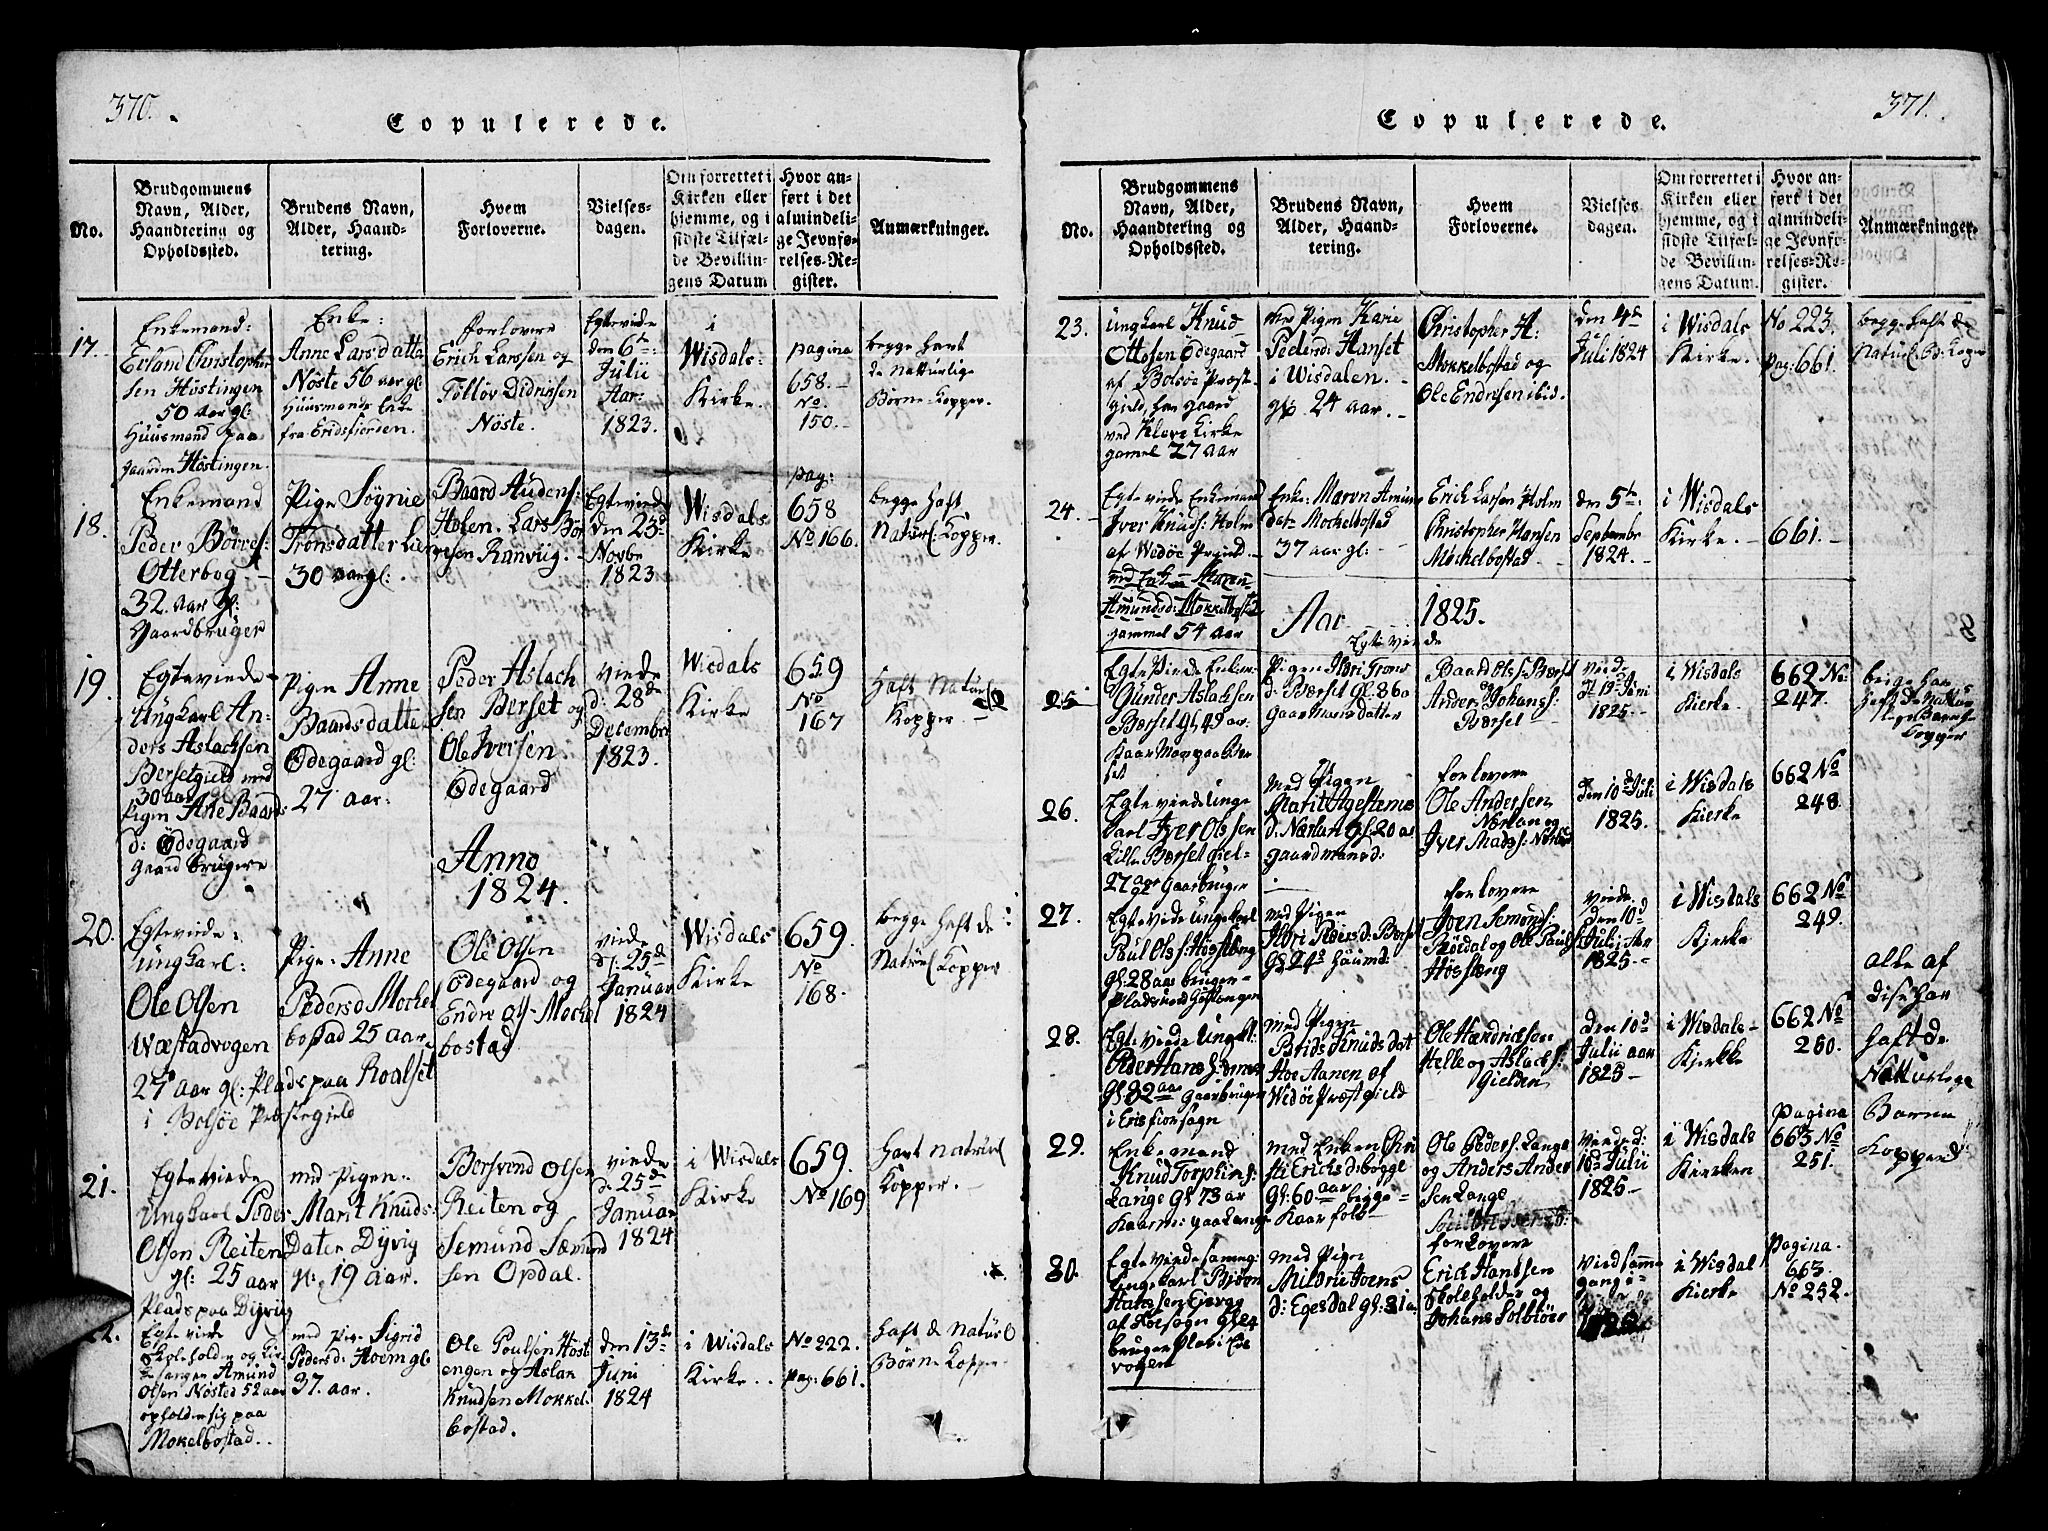 370.
Copulerede.
No.
Brudgommens
Navn, Alder,
Haandtering og
Opholdssted.
Brudens Navn,
Alder, Haand-
tering.
Hvem
Forloverne.
Vielses-
dagen.
Om forrettet i
Kirken eller
hjemme, og i
sidste Tilfæl-
de Bevillin-
gens Datum
Hvor an-
ført i det
almindeli-
ge Jevnfø-
relses-Re-
gister.
Anmærkninger.
17.
Enkemand:
Erland Christopher
sen Höstingen
50 aar gl:
Huusmand paa
gaarden Höstingen.
Enke:
Anne Larsdatter
Nöste 56 aar gl:
Huusmands Enke
fra Eridsfiorden.
Forlovere
Erich Larsen og
Tollöv Didriksen
Nöste.
Egtevirde
den 6te
Julii
Aar:
1823.
i
Wisdals:
Kirke.
pagina
658.
No.
150.
begge havt
de natturlige
Börne-Kopper.
18.
Enkemand
Peder Börres:
Otterbog.
32. aar gl:
Gaardbruger
Pige Sögnie
Tronsdatter Lien
30 aar gl:
Baard Audens:
Holen. Lars Bör
gesen Ranvüg.
Egtevirde
den 23d
Novbr
1823
Wisdals
Kirke
pag:
658
No 166.
begge haft
Natürl Kopper.
19.
Egtevirde
Ungkarl An-
ders Aslachsen
Berset gield med
30 aar
Pigen Ane Baards
d: Ödegaard
gaard brugere
Pigen Anne
Baardsdatter
Ödegaard gl:
27 aar:
Peder Aslach
sen Berset og
Ole Iversen
Ödegaard
virde
d: 28de
December
1823.
Wisdals
Kirke
659
No
167
Haft Natürl
Kopper.
Anno
1824.
20.
Egtevirde:
Ungkarl:
Ole Olsen
Wæstadvogen
27 aar gl: Plads paa Roalset
i Bolsöe Præstegield
Pige: Anne
Pedersd Mochel
bostad 25 aar.
Ole Olsen
Ödegaard og
Endre Ols Mochel
bostad
virde
d: 25de
Januar
1824
Wisdals
Kirke
659.
No
168.
begge haft de
Natürl Kopper
21.
Egtevirde
Ungkarl Peder
Olsen Reiten
gl: 25 aar
Plads paa Dyrvig
med Pigen
Marit Knuds:
Dater Dyvig
gl: 19 aar.
Bersvend Olsen
Reiten og
Semund Sæmund
sen Opdal.
virde
d: 25de
Januar
1824
i Wisdals
Kirke
659.
No 169
Havt Natürl
Kopper.
22.
Egtevirde
Skoleholder og Kir
kesanger Amund
Olsen Nösted 52 aar
opholder sig paa
Mokelbostad.
med Pige Sigrid
Pedersd: Hoem gl:
37. aar.
Ole Poulsen Höst
engen og Aslak
Knudsen Mokkel
bostad.
den 13de
Juni
1824
i Wisdals
Kirke.
No 222.
pag: 661.
haft de Natürl
Börne Kopper
371.
Copulerede.
No.
Brudgommens
Navn, Alder,
Haandtering og
Opholdssted.
Brudens Navn,
Alder, Haand-
tering.
Hvem
Forloverne.
Vielses-
dagen.
Om forrettet i
Kirken eller
hjemme, og i
sidste Tilfæl-
de Bevillin-
gens Datum.
Hvor an-
ført i det
almindeli-
ge Jevnfø-
relses-Re-
gister.
Anmærkninger.
23.
Ungkarl Knud
Ottosen Ödegaard
af Bolsöe Præst-
gield, paa gaard
ved Klæve Kirke
gamel 27 aar
Pigen Karie
Pedersd: Hanset
i Wisdalen.
gl. 24 aar.
Christopher H:
Mokkelbostad og
Ole Endresen ibid.
den 4de
Juli 1824
i Wisdals
Kirke.
No 223.
pag: 661.
begge haft de
Natürl B: Koper
24.
Egtevirde Enkemand
Iver Knuds: Holm
af Wedöe Prgield
med Enke Maren
Amundsd: Mokkelbost
gammel 54 aar
Enke: Maren Amun
datr Mochelbostad
37 aar gl:
Erich Larsen Holm
Christopher Hansen
Mochelbostad
den 5te
September
1824.
i Wisdals
Kirke.
661.
Aar 1825.
Egtevirde
25
Egtevirde Enkem
Gunder Aslachsen
Berset gl 49 ar.
Kaar Man paa Ber
set
Pigen Kari Trons
d: Berset gl: 36 a
Gaar Mans Datter
Baard Ols: Berset
og
Anders Johans:
Berset
virde
d 19de Juni
1825.
i Wisdals
Kierke.
662 No
247.
begge har
haft de Nattur
lige Barne
Kopper
26.
Egtevirde Unge
karl Iver Olssen
Lille Berset giel
27 aar Gaarbruger
Med Pigen
Marit Agestens
d: Nærlan gl 20 ar
gaardmansd:
forlovere
Ole Andersen
Nærlan og
Iver Mads: Nörl
den 10de Juli
1825.
i Wisdals
Kierke
662 No
248.
27.
Egtevirde Ungekarl
Paul Ols: Höstbeng
gl: 28 aar bruger
Pladsmand Höstengen
med Pigen
Kari Pedersd: Berset
gl 24 Huusmd:
forlovere
Joen Semonds:
Röedal og Ole Pauls:
Höstæng
virde
den 10d
Juli Aar
1825.
i Wisdals
Kjerke
662 No
249.
alle af
dise har
haft de
Natturlige
Barne
Kopper
28.
Egtevirde Ungkl:
Peder Hans:
gl: 32 aar Gaarbruger
i Erisfiorsogn
med Pigen
Brids Knudsdat
Hoe Aanen af
Wedöe Præstgield
Ole Hændrichsen
Helle og Aslach:
Gielden
den 10d
Julii aar
1825
i Wisdals
Kjerkke
662 No
250.
29.
Enkemand
Knud Torpsins:
Lange gl 73 ar
Kaarm: paa Lange
med Enken Chri
sti Erichsd: begge
gl: 60 aar begge
Kaar folk
Ole Peders: Lange
og Anders Ander
sen Lange
virde d:
10d Julii
1825
i Wisdals
Kierken
pagina
663 No
251.
30.
Egtevirde samme
Ungekarl Biörn
Hanssen
af
bruger
vogen
med Pigen
Mildrie Joens
d: Egesdal gl: 31 a
forlovere
Erich Hanssen
Skoleholder og
Johans Solbiör
Vird samme
gang
i Wisdal
Kierke
pagina
663
No 252.